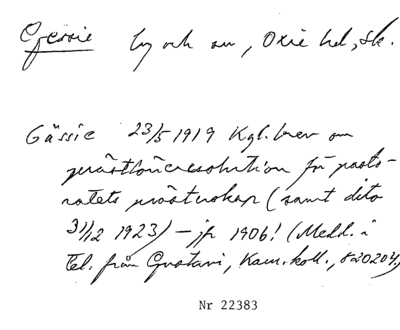 Gessie by och sn, Oxie hd, Sk.
Gässie 23/5 1919 Kgl. brev om
prästlöneresolution för pasto-
ratets prästerskap (samt dito
31/12 1923) – jfr 1906! (Medd. i
tel. från Gustavi, Kam.koll., 820204)
Nr 22383